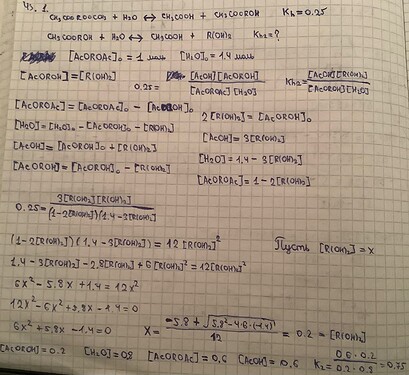 Чз. 1.
CH₃COOROOCCH₃ + H₂O ⇔ CH₃COOH + CH₃COOROH Kh = 0.25
CH₃COOROH + H₂O ⇔ CH₃COOH + R(OH)₂ Kh₂ = ?
[AcOROAc]₀ = 1 моль [H₂O]₀ = 1.4 моль
[AcOROH] = [R(OH)₂] 0.25 = [AcOH][AcOROH] / [AcOROAc][H₂O] Kh₂ = [AcOH][R(OH)₂] / [AcOROH][H₂O]
[AcOROAc] = [AcOROAc]₀ - [AcOROH]₀ 2[R(OH)₂] = [AcOROH]₀
[H₂O] = [H₂O]₀ - [AcOROH]₀ - [R(OH)₂] [AcOH] = 3[R(OH)₂]
[AcOH] = [AcOROH]₀ + [R(OH)₂] [H₂O] = 1.4 - 3[R(OH)₂]
[AcOROH] = [AcOROH]₀ - [R(OH)₂] [AcOROAc] = 1 - 2[R(OH)₂]
0.25 = 3[R(OH)₂][R(OH)₂] / (1-2[R(OH)₂])(1.4-3[R(OH)₂])
(1-2[R(OH)₂])(1.4-3[R(OH)₂]) = 12[R(OH)₂]² Пусть [R(OH)₂] = x
1.4 - 3[R(OH)₂] - 2.8[R(OH)₂] + 6[R(OH)₂]² = 12[R(OH)₂]²
6x² - 5.8x + 1.4 = 12x²
12x² - 6x² + 5.8x - 1.4 = 0
6x² + 5.8x - 1.4 = 0 x = -5.8 + √5.8² - 4·6·(-1.4) / 12 = 0.2 = [R(OH)₂]
[AcOROH] = 0.2 [H₂O] = 0.8 [AcOROAc] = 0.6 [AcOH] = 0.6 K₂ = 0.6·0.2 / 0.2·0.8 = 0.75